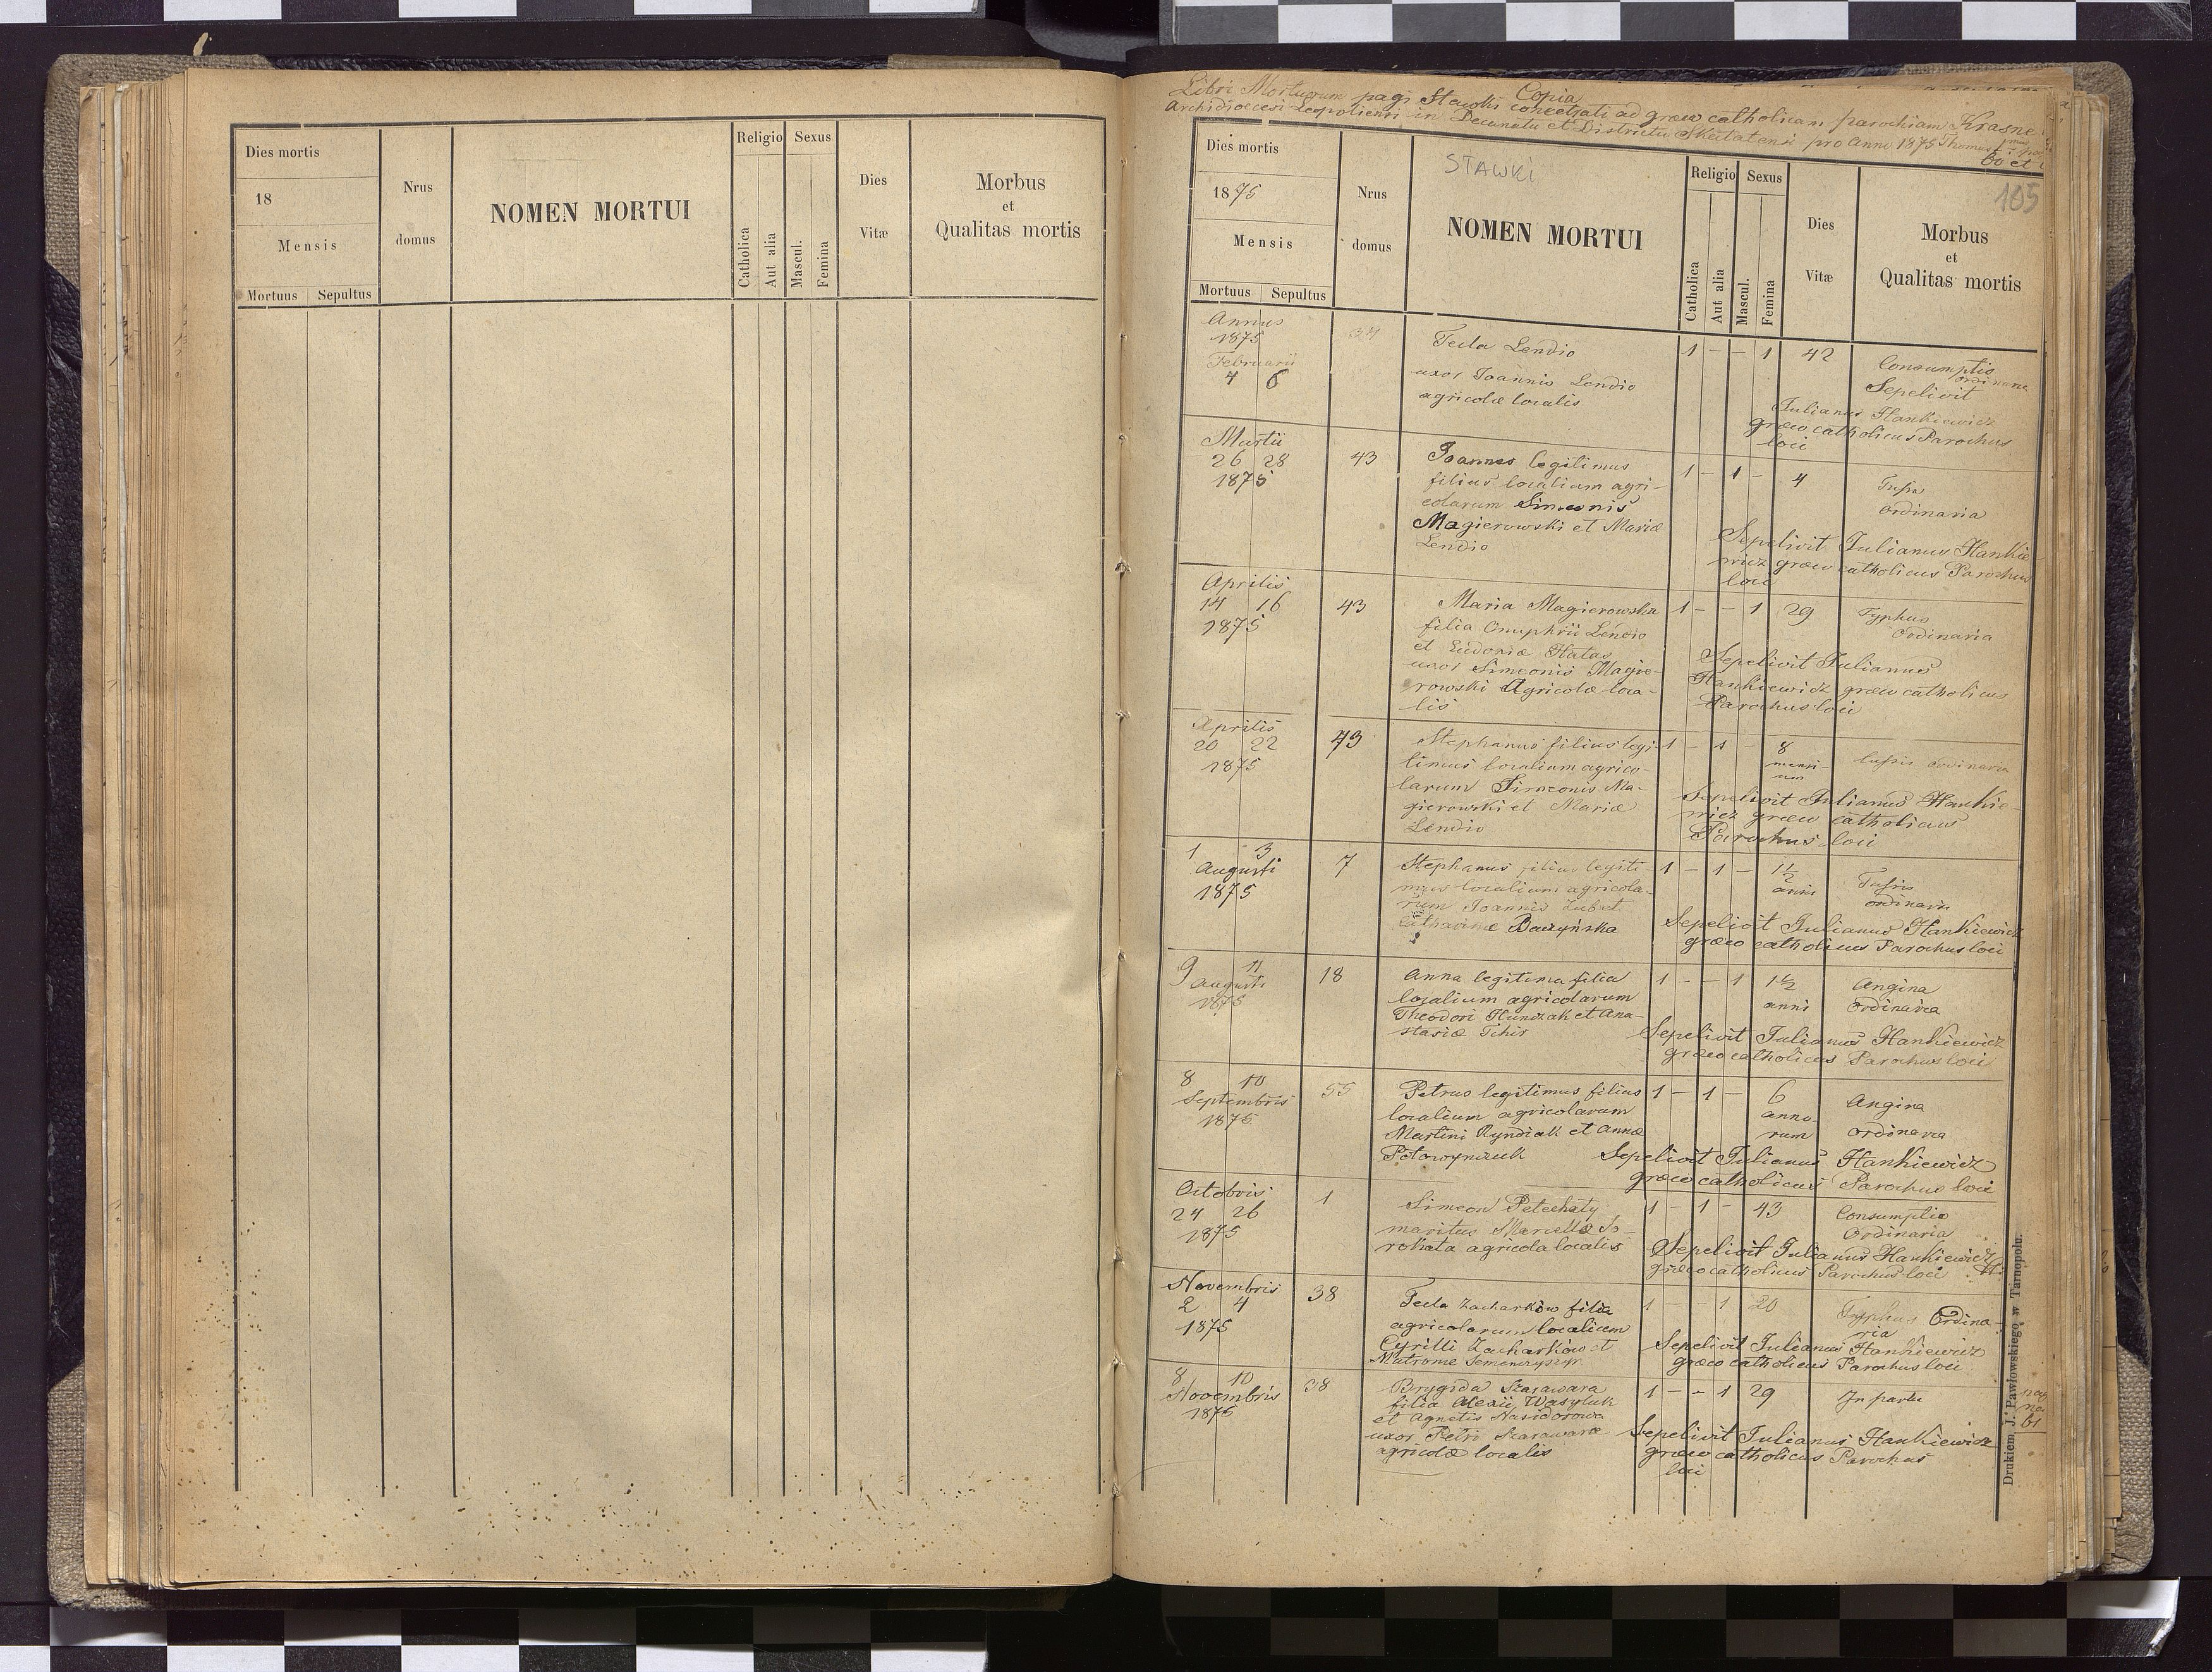 Dies mortis
18
Mensis
Mortuus Sepultus
Nrus
domus
NOMEN MORTUI
Religio
Catholica
Aut alia
Sexus
Mascul.
Femina
Dies
Vitæ
Morbus
et
Qualitas mortis
Copia
Libri Mortuorum pagi Stawki concetrati ad græco catholicam parochiam Krasne
Archidioecesi Leopoliensi in Decanatu et Districtu Skalatensi pro Anno 1875
105
Dies mortis
1875
Mensis
Mortuus Sepultus
Nrus
domus
STAWKI
NOMEN MORTUI
Religio
Catholica
Aut alia
Sexus
Mascul.
Femina
Dies
Vitæ
Morbus
et
Qualitas mortis
Annus
1875
Februarii
4 6
34
Tecla Lendio
uxor Joannis Lendio
agricolæ localis
1 - - 1 42
Consumptio
ordinaria
Sepelivit
Julianus Hankiewicz
græco catholicus Parochus
loci
Martii
26 28
1875
43
Joannes legitimus
filius localium agri-
colarum Simeonis
Magierowski et Mariæ
Lendio
1 - 1 - 4
Tussis
Ordinaria
Sepelivit Julianus Hankie-
wicz græco catholicus Parochus
loci
Aprilis
14 16
1875
43
Maria Magierowska
filia Onuphrii Lendio
et Eudoxiæ Hatas
uxor Simeonis Magie-
rowski Agricolæ loca-
lis
1 - - 1 29
Typhus
Ordinaria
Sepelivit Julianus
Hankiewicz græco catholicus
Parochus loci
Aprilis
20 22
1875
43
Stephanus filius legi-
timus localium agrico-
larum Simeonis Ma-
gierowski et Mariæ
Lendio
1 - 1 - 8
mensi-
um
tussis ordinaria
Sepelivit Julianus Hankie-
wicz græco catholicus
Parochus loci
1 3
Augusti
1875
7
Stephanus filius legiti
mus localium agricola-
rum Joannis Zub et
Catharinæ Baczyńska
1 - 1 - 1½
anni
Tussis
ordinaria
Sepelivit Julianus Hankiewicz
græco catholicus Parochus loci
9 11
Augusti
1875
18
Anna legitima filia
localium agricolarum
Theodori Hunczak et Ana-
stasiæ
1 - - 1 1½
anni
Angina
Ordinaria
Sepelivit Julianus Hankiewicz
græco catholicus Parochus loci
8 10
Septembris
1875
55
Petrus legitimus filius
localium agricolarum
Martini Ryndiak et Annæ
1 - 1 - 6
anno-
rum
Angina
ordinaria
Sepelivit Julianus Hankiewicz
græco catholicus Parochus loci
Octobris
24 26
1875
1
Simeon Petechaty
maritus Marcellæ So-
rokata agricola localis
1 - 1 - 43
Consumptio
Ordinaria
Sepelivit Julianus Hankiewicz
græco catholicus Parochus loci
Novembris
2 4
1875
38
Tecla Zacharków filia
agricolarum localium
Cyrilli Zacharków et
1 - - 1 20
Typhus Ordina-
ria
Sepelivit Julianus Hankiewicz
græco catholicus Parochus loci
8 10
Novembris
1875
38
Brygida Szarawara
filia Alexii Wasyluk
et Agnetis Nasidorowa
uxor Petri Szarawaræ
agricolæ localis
1 - - 1 29
In partu
Sepelivit Julianus Hankiewicz
græco catholicus Parochus
loci
Drukiem J. Pawłowskiego w Tarnopolu.